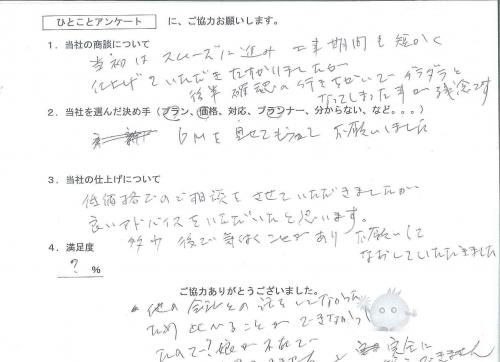 ひとことアンケート に、ご協力お願いします。
1．当社の商談について
当初はスムーズに進み 工事期間も短かく
仕上げていただきたすかりましたが
後半 確認の行きちがいでダラダラと
なってしまった事が残念です
2．当社を選んだ決め手（プラン、価格、対応、プランナー、分からない、など。。。）
を見せてもらって お願いしました
3．当社の仕上げについて
低価格でのご相談をさせていただきましたが
良いアドバイスをいただいたと思います。
多少 後で気付くことがあり お願いして
なおしていただきました
4．満足度
? %
ご協力ありがとうございました。
他の会社との話をしてなかった
ため 比べることができなかっ
たので?
完全に